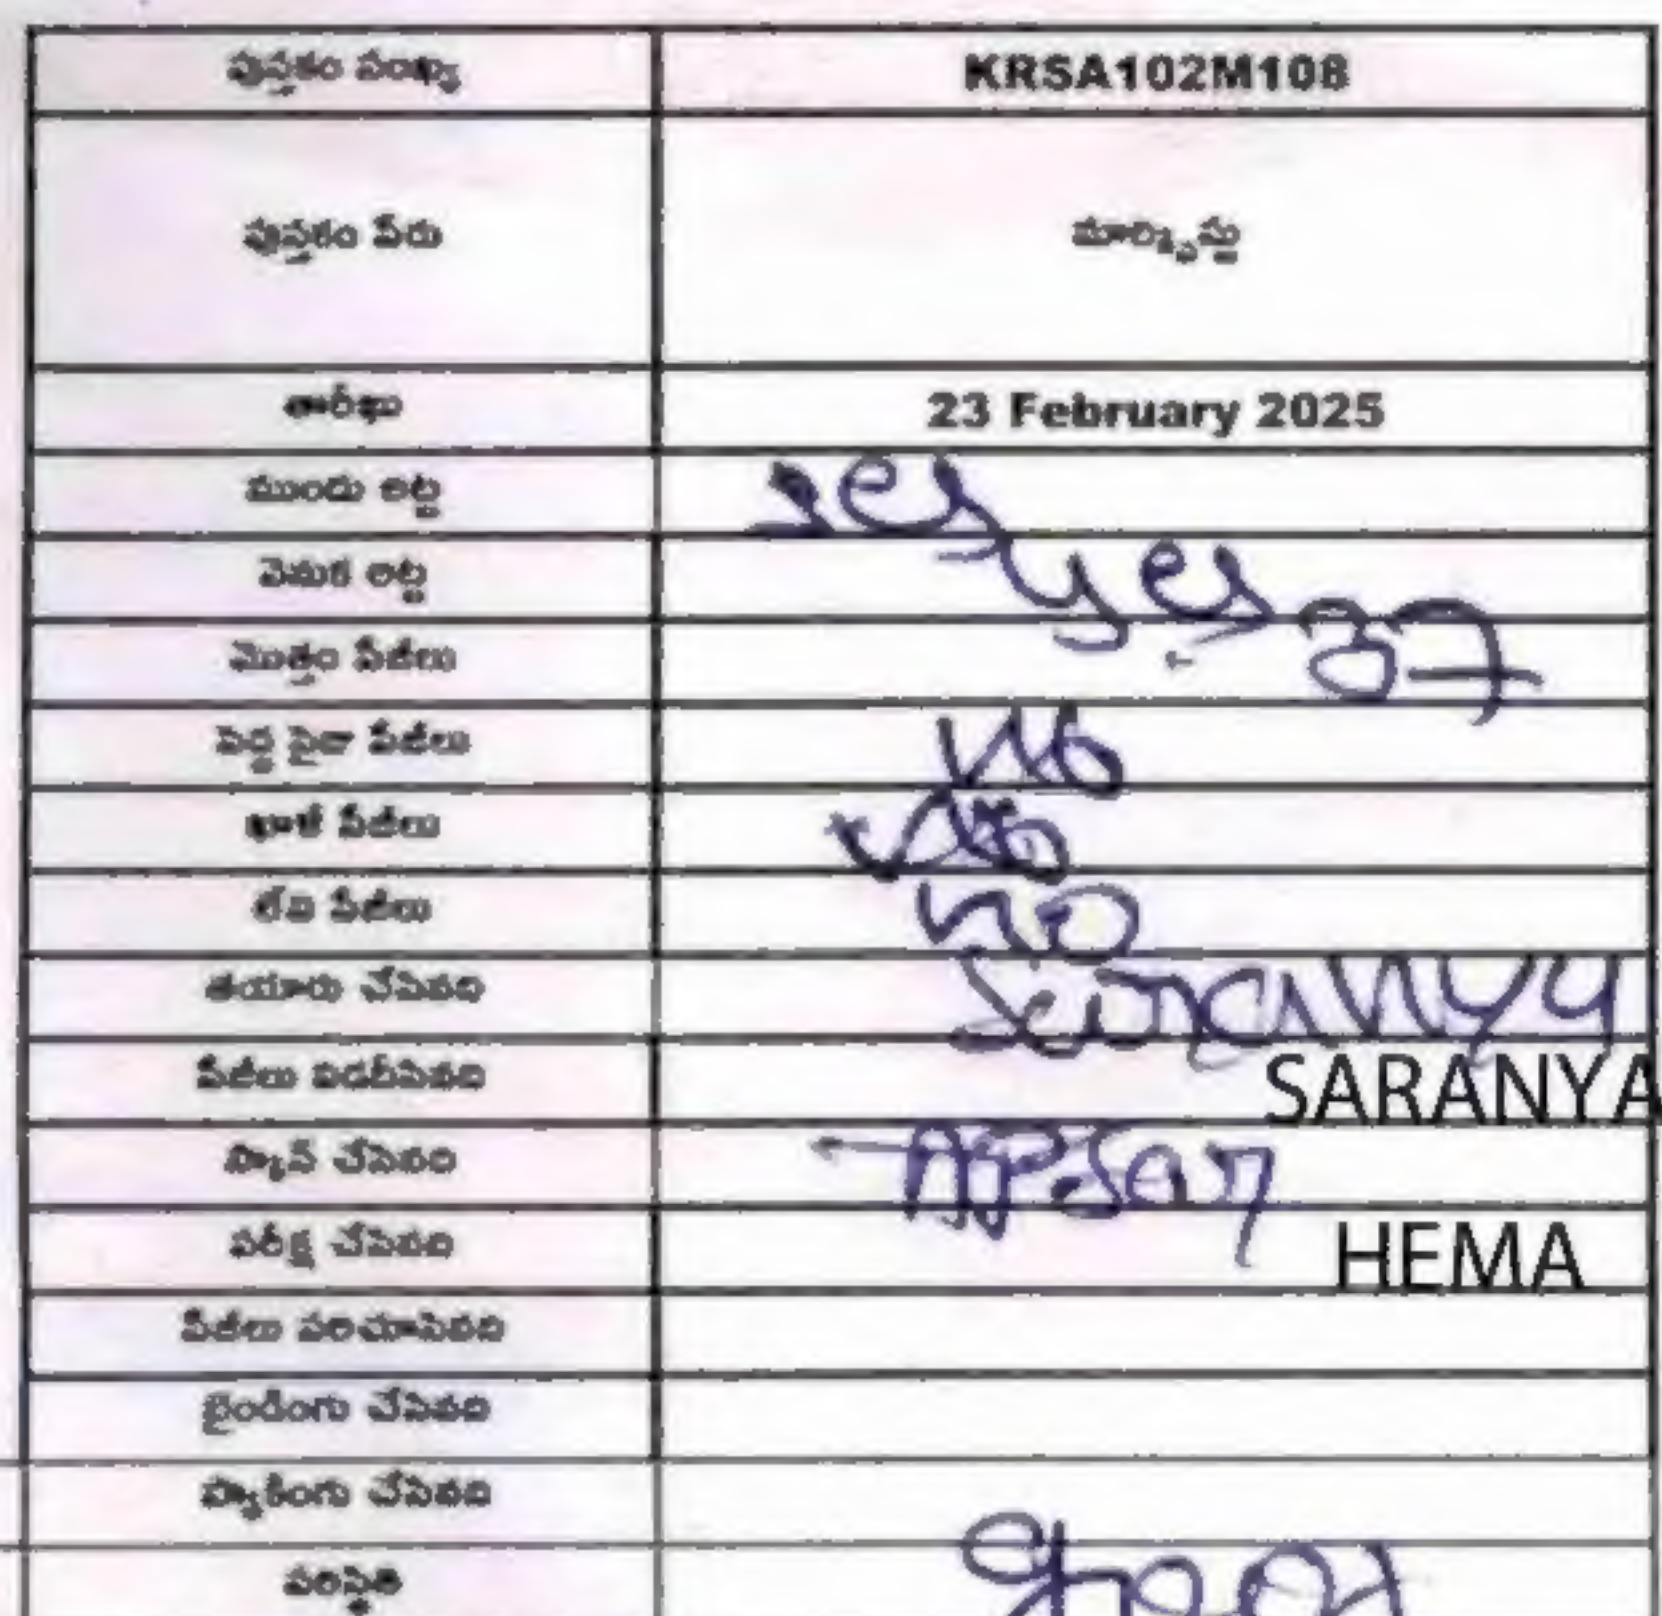 పుస్తకం సంఖ్య KRSA102M108
పుస్తకం పేరు మార్క్సిస్టు
తారీఖు 23 February 2025
ముందు అట్ట yes
వెనుక అట్ట yes
మొత్తం పేజీలు 37
పెద్ద సైజు పేజీలు no
ఖాళీ పేజీలు no
లేని పేజీలు no
తయారు చేసినది Saranya
పేజీలు విడదీసినది SARANYA
స్కాన్ చేసినది
పరీక్ష చేసినది HEMA
పేజీలు సరిచూసినది
బైండింగు చేసినది
ప్యాకింగు చేసినది
పరిస్థితి